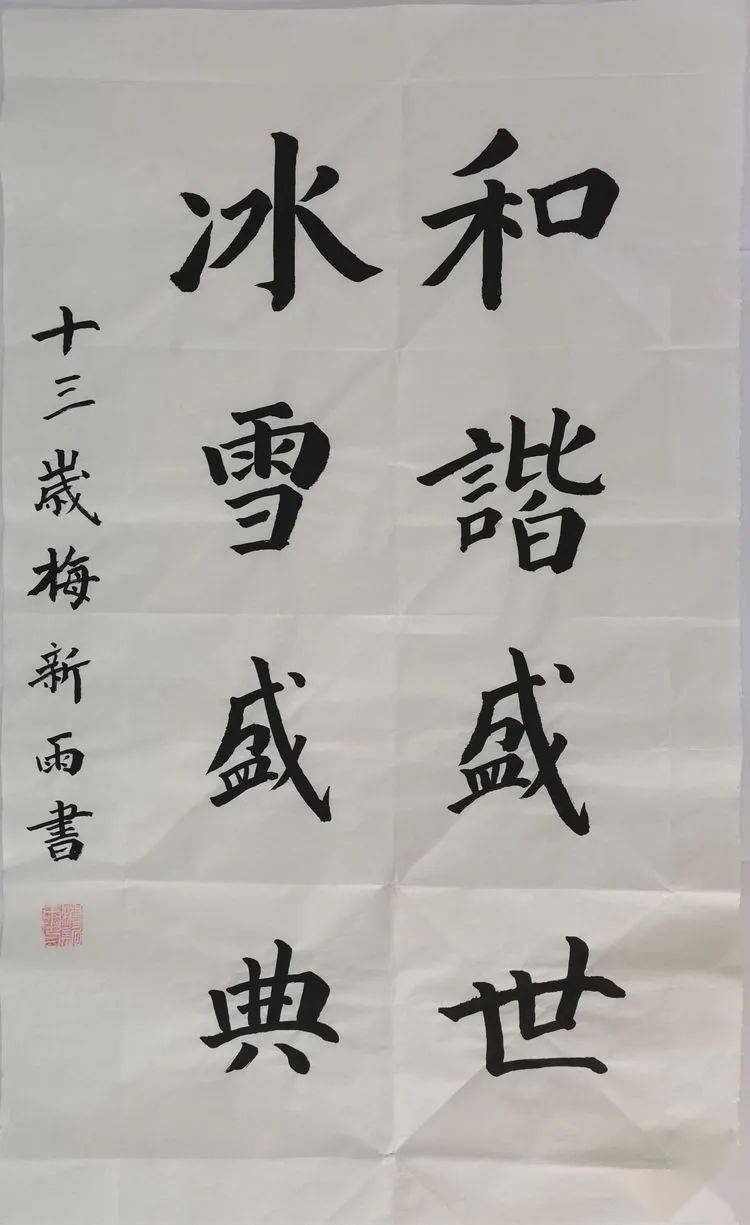 和諧盛世
冰雪盛典
十三歲梅新雨書